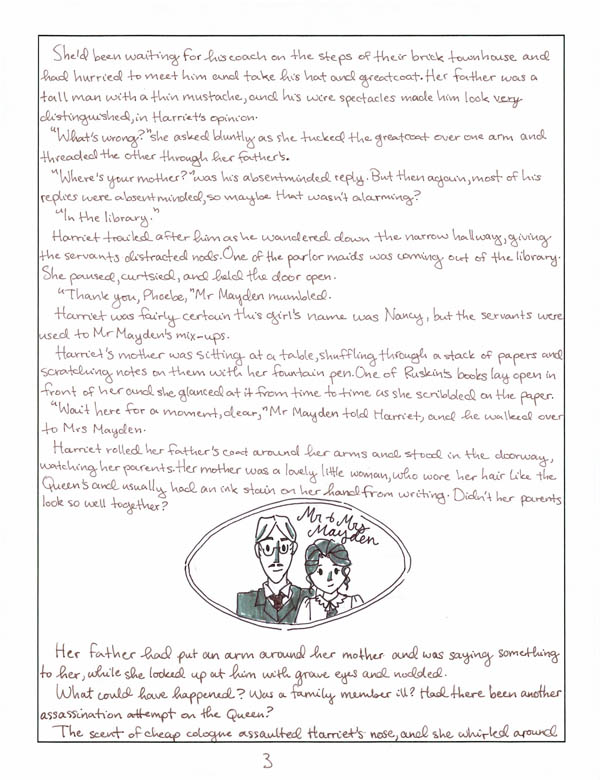 She'd been waiting for his coach on the steps of their brick townhouse and
had hurried to meet him and take his hat and greatcoat. Her father was a
tall man with a thin mustache, and his wire spectacles made him look very
distinguished, in Harriet's opinion.
"What's wrong?" she asked bluntly as she tucked the greatcoat over one arm and
threaded the other through her father's.
"Where's your mother?" was his absentminded reply. But then again, most of his
replies were absentminded, so maybe that wasn't alarming?
"In the library."
Harriet trailed after him as he wandered down the narrow hallway, giving
the servants distracted nods. One of the parlor maids was coming out of the library.
She paused, curtsied, and held the door open.
"Thank you, Phoebe," Mr Mayden mumbled.
Harriet was fairly certain this girl's name was Nancy, but the servants were
used to Mr Mayden's mix-ups.
Harriet's mother was sitting at a table, shuffling through a stack of papers and
scratching notes on them with her fountain pen. One of Ruskin's books lay open in
front of her and she glanced at it from time to time as she scribbled on the paper.
"Wait here for a moment, dear," Mr Mayden told Harriet, and he walked over
to Mrs Mayden.
Harriet rolled her father's coat around her arms and stood in the doorway,
watching her parents. Her mother was a lovely little woman, who wore her hair like the
Queen's and usually had an ink stain on her hand from writing. Didn't her parents
look so well together?
Mr & Mrs
Mayden
Her father had put an arm around her mother and was saying something
to her, while she looked up at him with grave eyes and nodded.
What could have happened? Was a family member ill? Had there been another
assassination attempt on the Queen?
The scent of cheap cologne assaulted Harriet's nose, and she whirled around
3